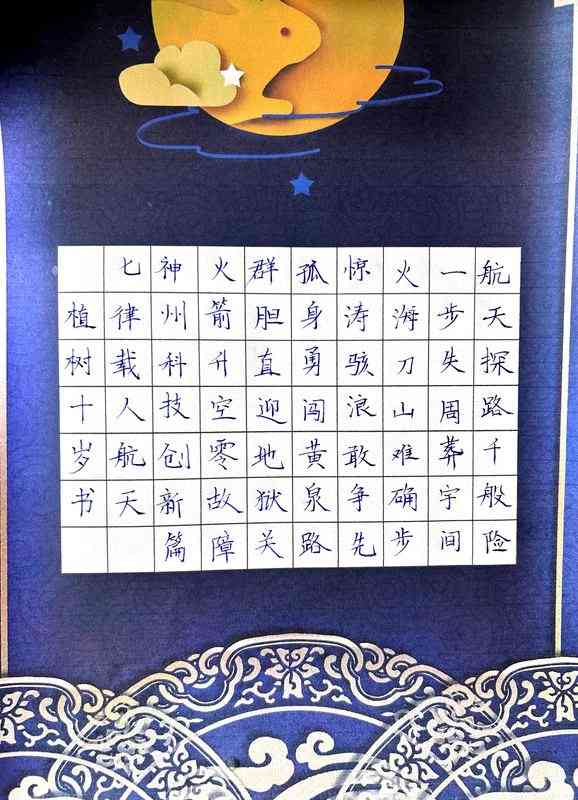 航天探路千般险
一步失周葬宇间
火海刀山难确步
惊涛骇浪敢争先
孤身勇闯黄泉路
群胆直迎地狱关
火箭升空零故障
神州科技创新篇
七律载人航天
植树十岁书